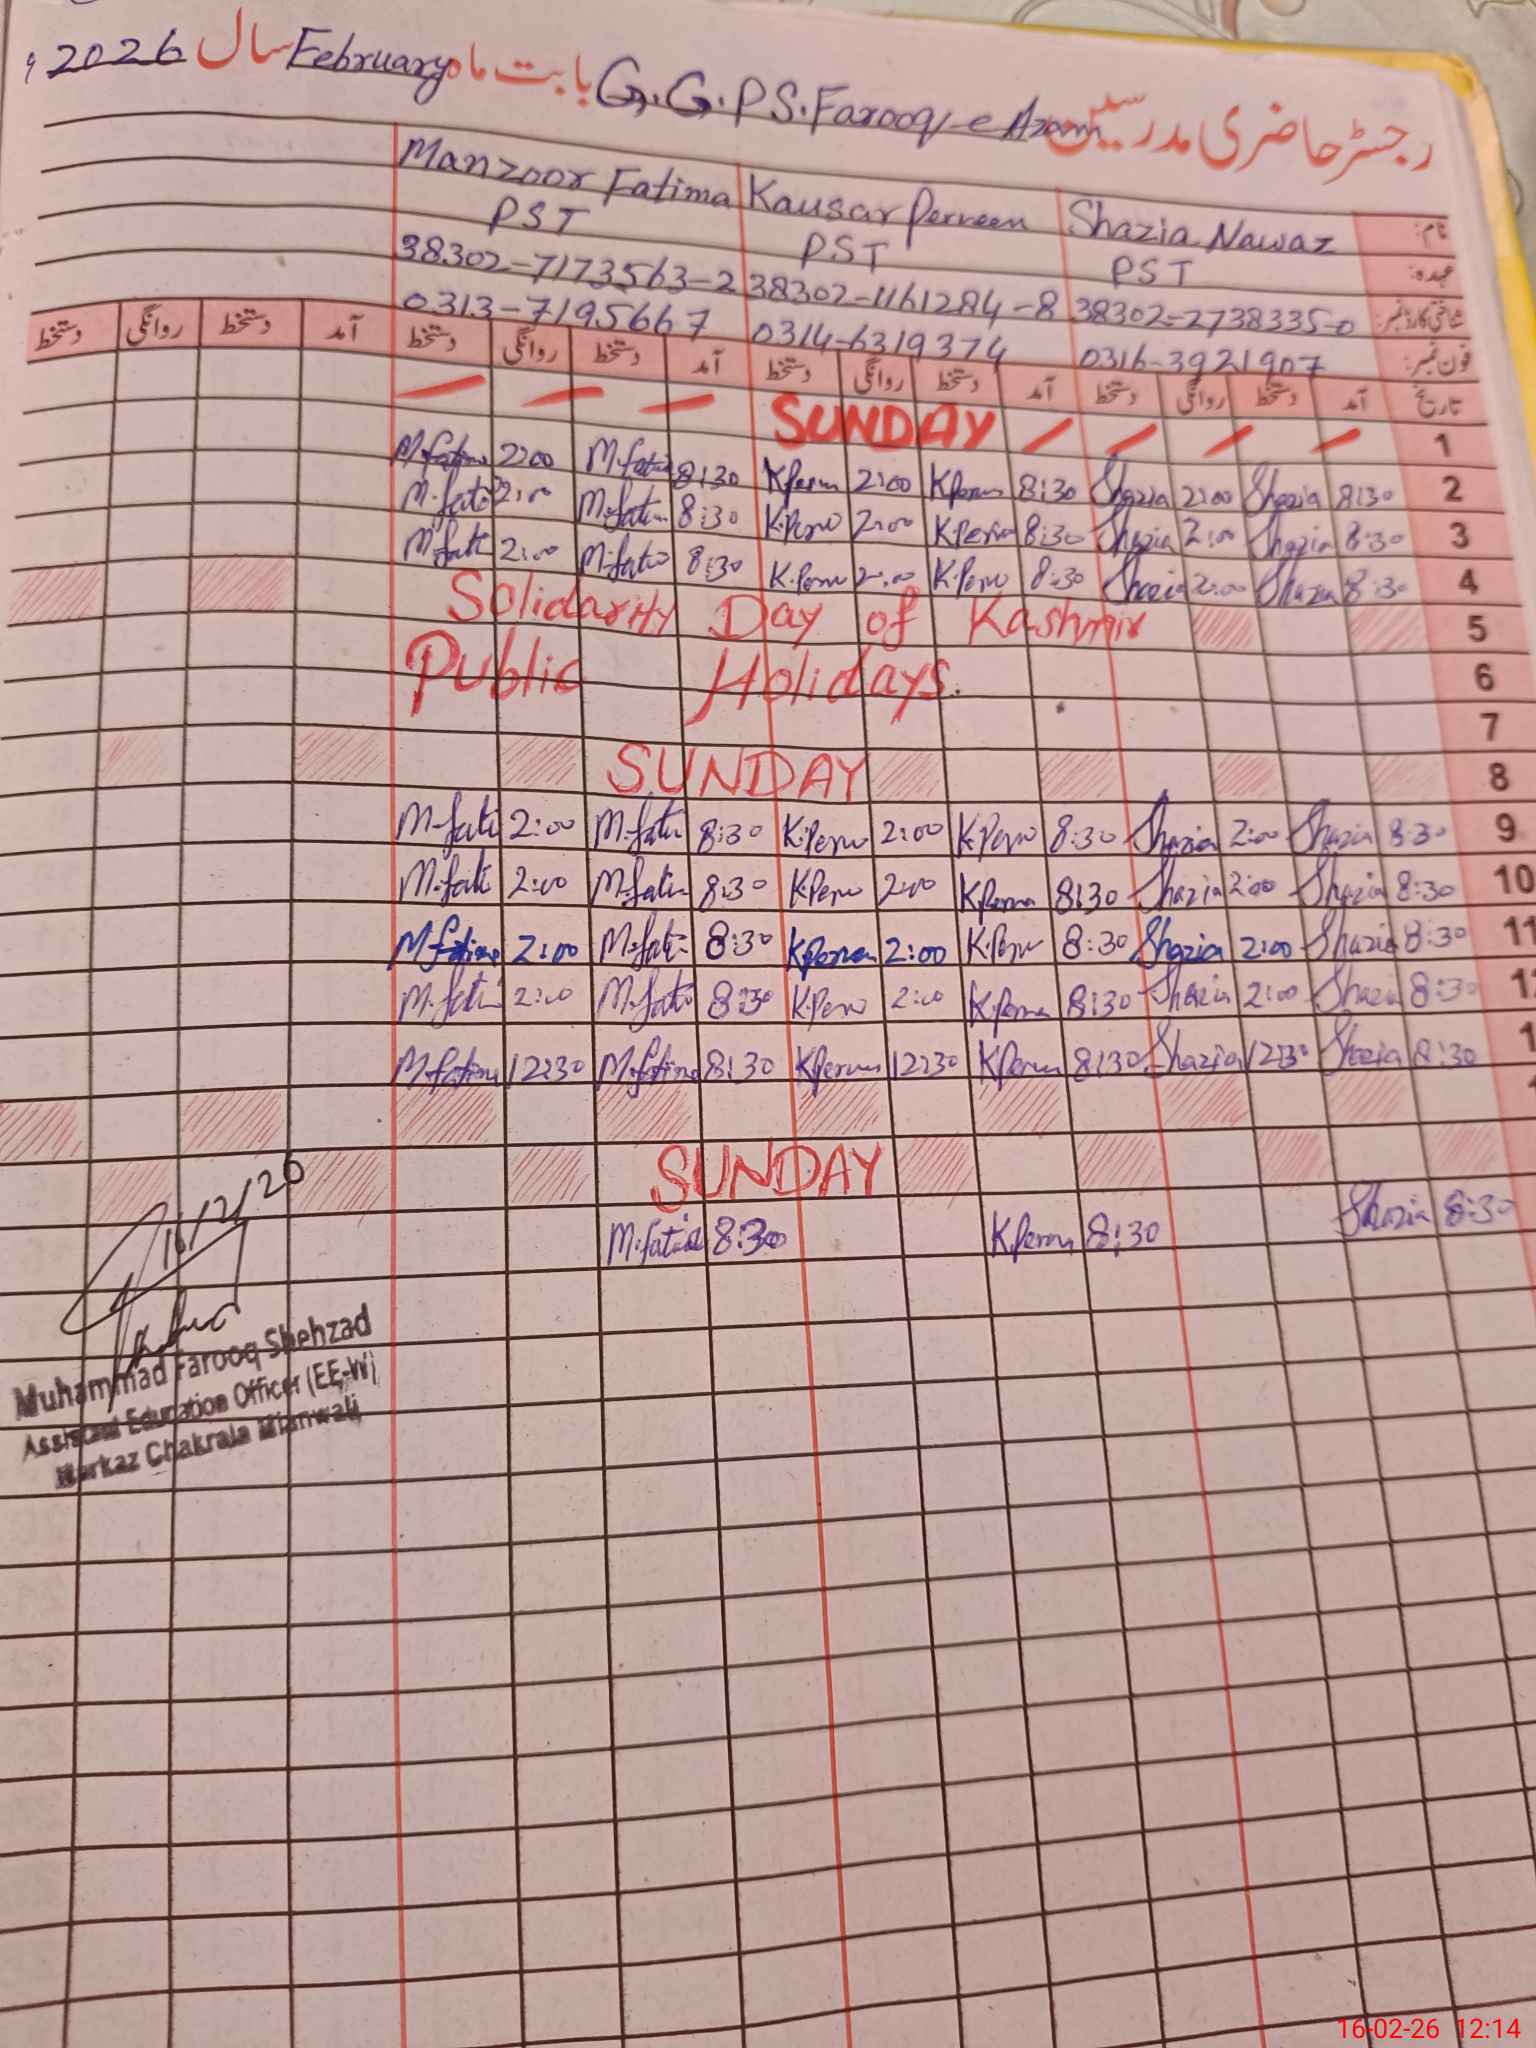 رجسٹر حاضری مدرسین G.G.P.S. Farooq-e-Azam بابت ماہ February سال 2026ء
نام: Shazia Nawaz Kausar Perveen Manzoor Fatima
عہدہ: PST PST PST
شناختی کارڈ نمبر: 38302-2738335-0 38302-1161284-8 38302-7173563-2
فون نمبر: 0316-3921907 0314-6319374 0313-7195667
تاریخ آمد دستخط روانگی دستخط آمد دستخط روانگی دستخط آمد دستخط روانگی دستخط آمد دستخط روانگی دستخط
1 SUNDAY
2 8:30 Shazia 2:00 Shazia 8:30 K.Perveen 2:00 K.Perveen 8:30 M.Fatima 2:00 M.Fatima
3 8:30 Shazia 2:00 Shazia 8:30 2:00 8:30 2:00
4 8:30 Shazia 2:00 Shazia 8:30 2:00 8:30 2:00
5 Solidarity Day of Kashmir
6 Public Holidays.
7
8 SUNDAY
9 8:30 Shazia 2:00 Shazia 8:30 2:00 8:30 2:00
10 8:30 Shazia 2:00 Shazia 8:30 2:00 8:30 2:00
11 8:30 Shazia 2:00 Shazia 8:30 2:00 8:30 2:00 M.Fatima
8:30 Shazia 2:00 Shazia 8:30 2:00 8:30 2:00
8:30 Shazia 12:30 Shazia 8:30 12:30 8:30 M.Fatima 12:30 M.Fatima
SUNDAY
8:30 Shazia 8:30 8:30
Muhammad Farooq Shehzad
Assistant Education Officer (EE-W)
Markaz Chakrala Mianwali
16-02-26 12:14